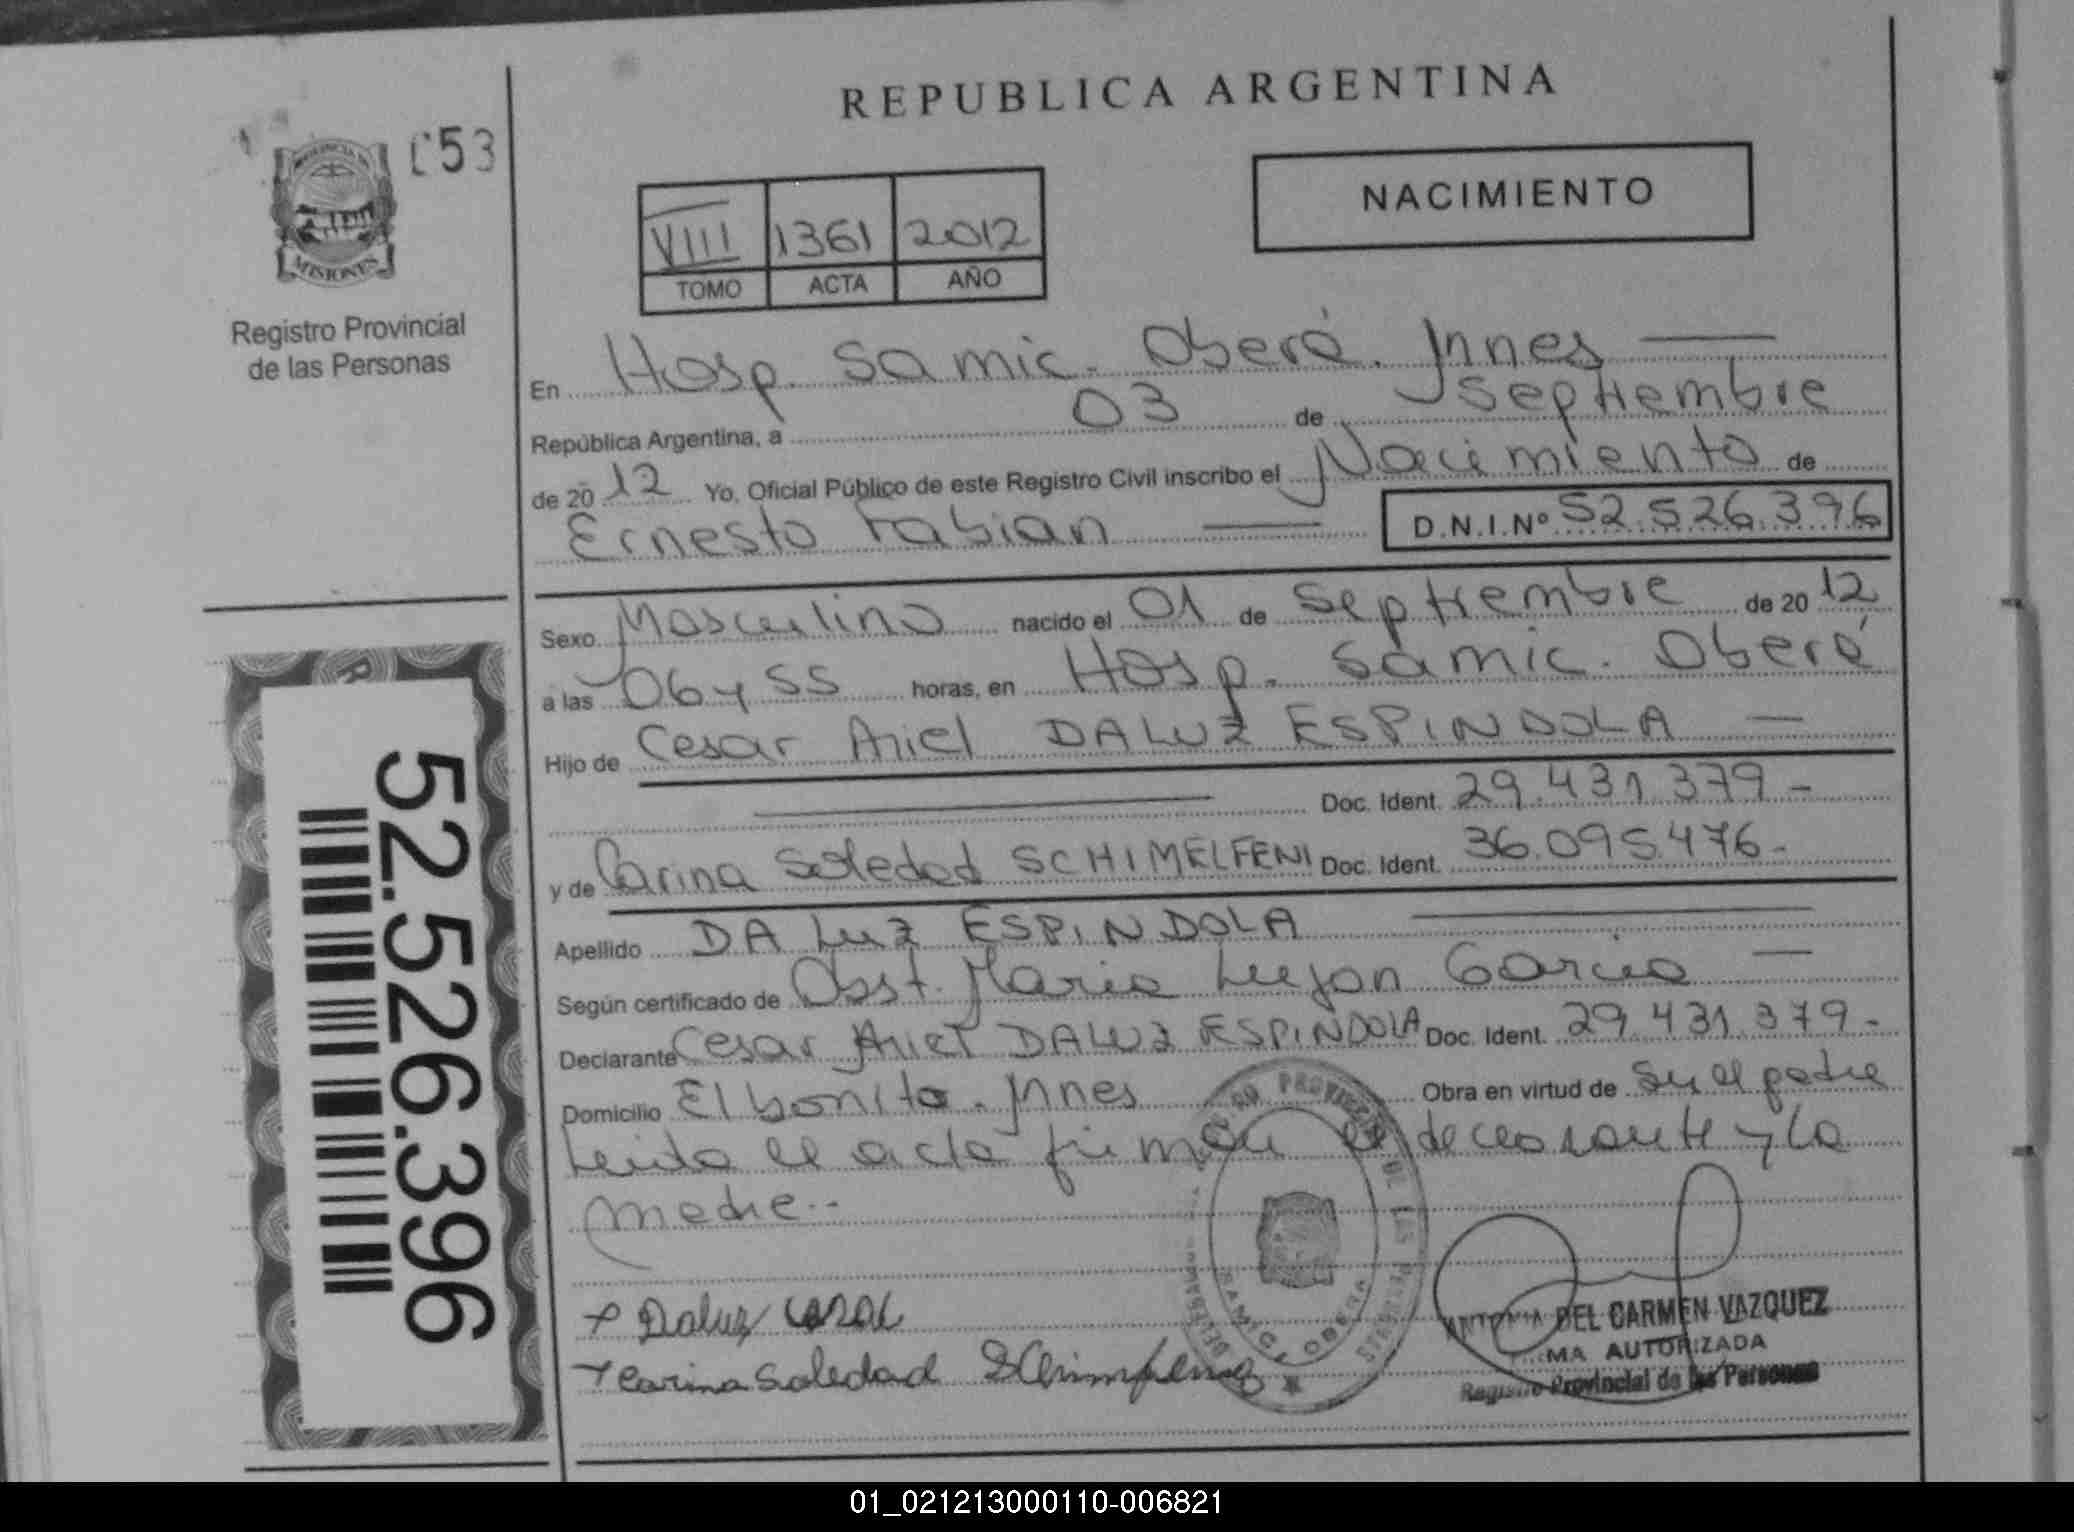 REPUBLICA ARGENTINA
053
PROVINCIA DE
MISIONES
Registro Provincial
de las Personas
NACIMIENTO
VIII 1361 2012
TOMO ACTA AÑO
En Hosp. Samic. Oberá. Mnes
República Argentina, a 03 de septiembre
de 2012 Yo, Oficial Público de este Registro Civil inscribo el Nacimiento de
Ernesto Fabian D.N.I.Nº 52.526.396
Sexo Masculino nacido el 01 de septiembre de 2012
a las 06 y 55 horas, en Hosp. Samic. Oberá
Hijo de Cesar Ariel DA LUZ ESPINDOLA
Doc. Ident. 29.431.379-
y de Carina Soledad SCHIMELFENI Doc. Ident. 36.095.476-
Apellido DA LUZ ESPINDOLA
Según certificado de Obst. Maria Lujan Garcia
Declarante Cesar Ariel DA LUZ ESPINDOLA Doc. Ident. 29.431.379-
Domicilio El bonito. Mnes Obra en virtud de Ser el padre
Leida el acta firman el declarante y la
madre..
x Daluz
x Carina Soledad
DEL CARMEN VAZQUEZ
AUTORIZADA
Registro Provincial de las Personas
52.526.396
01_021213000110-006821